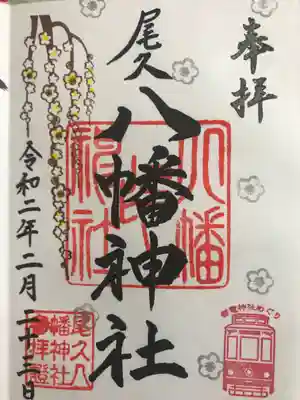 奉拝
尾久
八幡神社
八幡
神社
令和二年二月二十三日
尾久八
幡神社
参拝證
都電神社めぐり